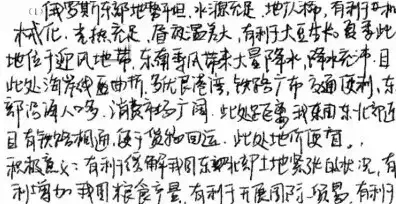 (1) 俄罗斯东部地势平坦，水源充足，地广人稀，有利于
机械化，光热充足，昼夜温差大，有利于大豆生长。夏季此
地位于迎风地带，东南季风带来大量降水，降水充沛。且
此处海岸线曲折，多优良港湾，铁路广布，交通便利，东
部沿海人口多，消费市场广阔。此处距离我国东北部近
且有铁路相通，便于货物回运。此处地价便宜。
积极意义：有利于缓解我国东北部土地紧张的状况，有
利增加我国粮食产量，有利于开展国际贸易，有利于